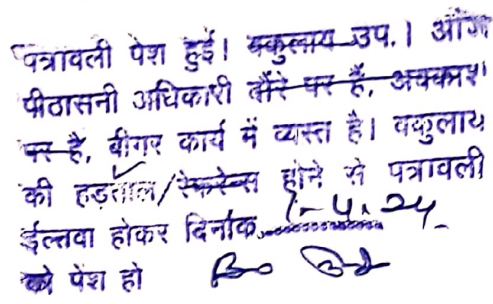 पत्रावली पेश हुई। वकुलाय उप.। आज
पीठासनी अधिकारी दौरे पर है, अवकाश
पर है, बीगर कार्य में व्यस्त है। वकुलाय
की हड़ताल/रेफरेन्स होने से पत्रावली
ईल्तवा होकर दिनांक 1-4-24
को पेश हो